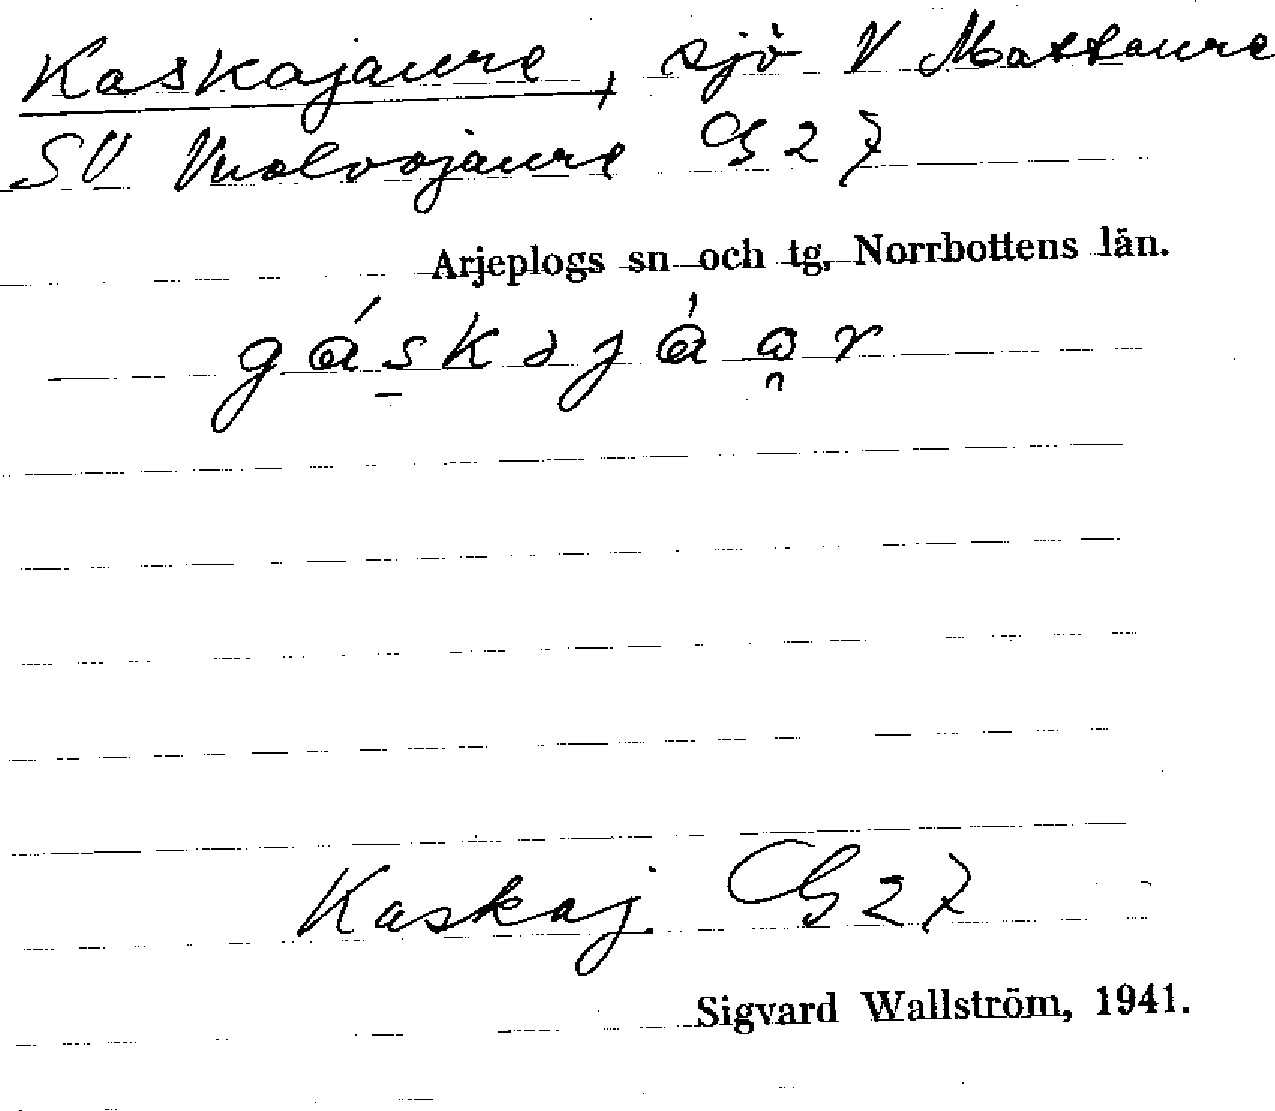 Kaskajaure, sjö V Mattaure
SV Vuolvojaure G 27
Arjeplogs sn och tg, Norrbottens län.
Kaskaj. G 27
Sigvard Wallström, 1941.